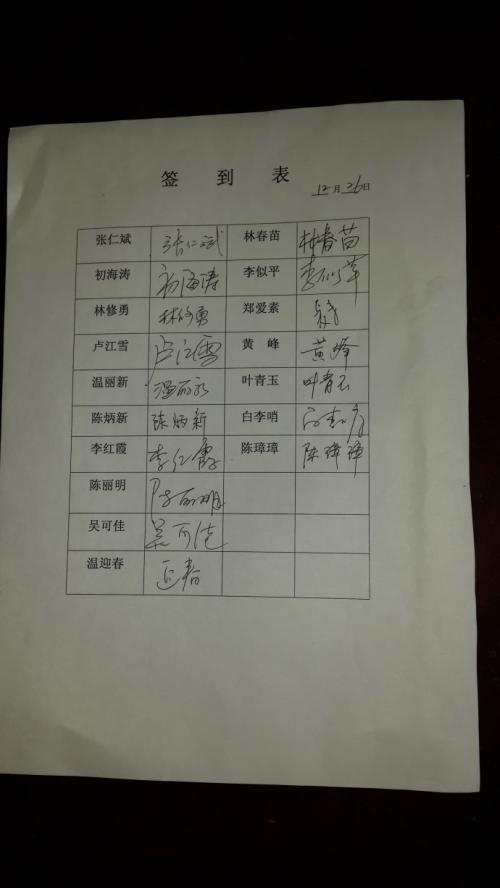 签到表
12月26日
张仁斌 张仁斌 林春苗 林春苗
初海涛 初海涛 李似平 李似平
林修勇 林修勇 郑爱素
卢江雪 卢江雪 黄峰 黄峰
温丽新 温丽新 叶青玉 叶青玉
陈炳新 陈炳新 白李哨
李红霞 李红霞 陈璋璋 陈璋璋
陈丽明 陈丽明
吴可佳 吴可佳
温迎春 迎春